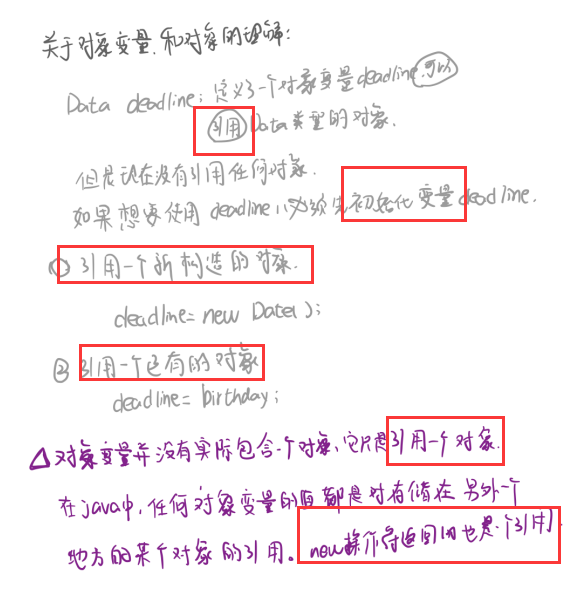 关于对象变量、和对象的理解:
Data deadline; 定义了一个对象变量deadline, 可以
引用Data类型的对象.
但是现在没有引用任何对象.
如果想要使用 deadline, 必须先初始化变量deadline.
① 引用一个新构造的对象.
deadline= new Date();
② 引用一个已有的对象
deadline= birthday;
△ 对象变量并没有实际包含一个对象, 它只是引用一个对象.
在java中, 任何对象变量的值都是对存储在另外一个
地方的某个对象的引用。new操作符返回的也是一个引用